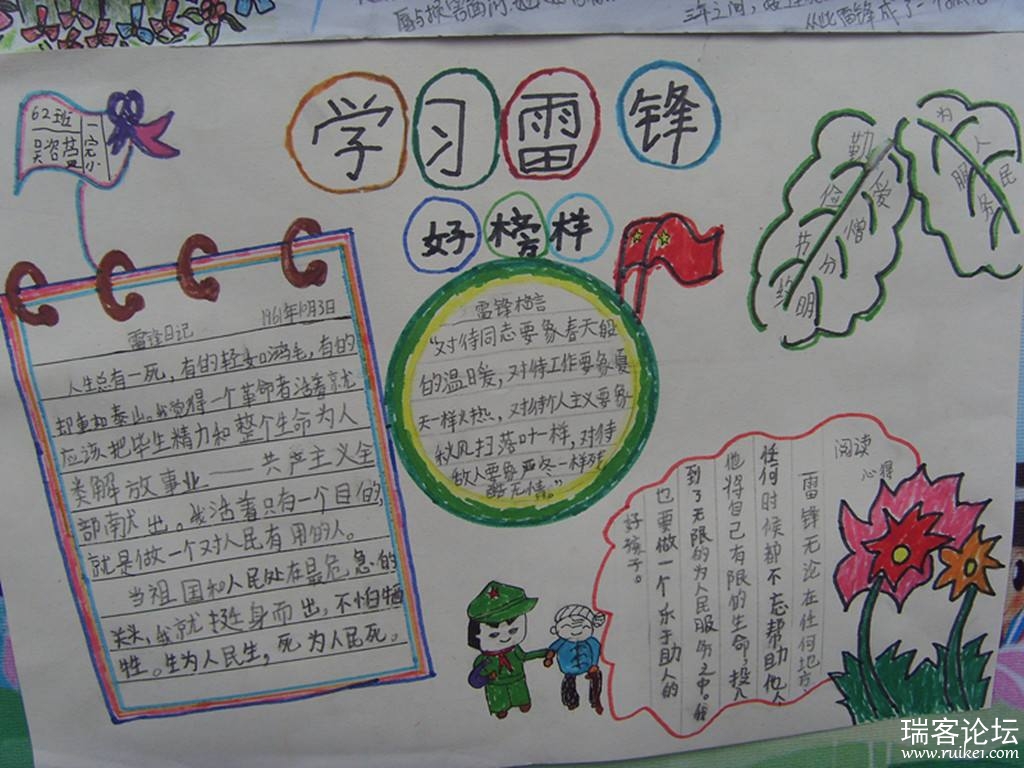 三年之间，
从此雷锋成了一
62班
一完小
学习雷锋
好榜样
雷锋日记 1961年10月3日
人生总有一死，有的轻如鸿毛，有的
却重如泰山。我觉得一个革命者活着就
应该把毕生精力和整个生命为人
类解放事业——共产主义全
部献出。我活着只有一个目的，
就是做一个对人民有用的人。
当祖国和人民处在最危急的
关头，我就挺身而出，不怕牺
牲。生为人民生，死为人民死。
雷锋格言
“对待同志要象春天般
的温暖，对待工作要象夏
天一样火热，对待个人主义要象
秋风扫落叶一样，对待
敌人要象严冬一样残
酷无情。”
勤俭节约
爱憎分明
为人民
服务
阅读
心得
雷锋无论在任何地方，
任何时候都不忘帮助他人
他将自己有限的生命，投入
到了无限的为人民服务之中。我
也要做一个乐于助人的
好孩子。
瑞客论坛
www.ruikei.com